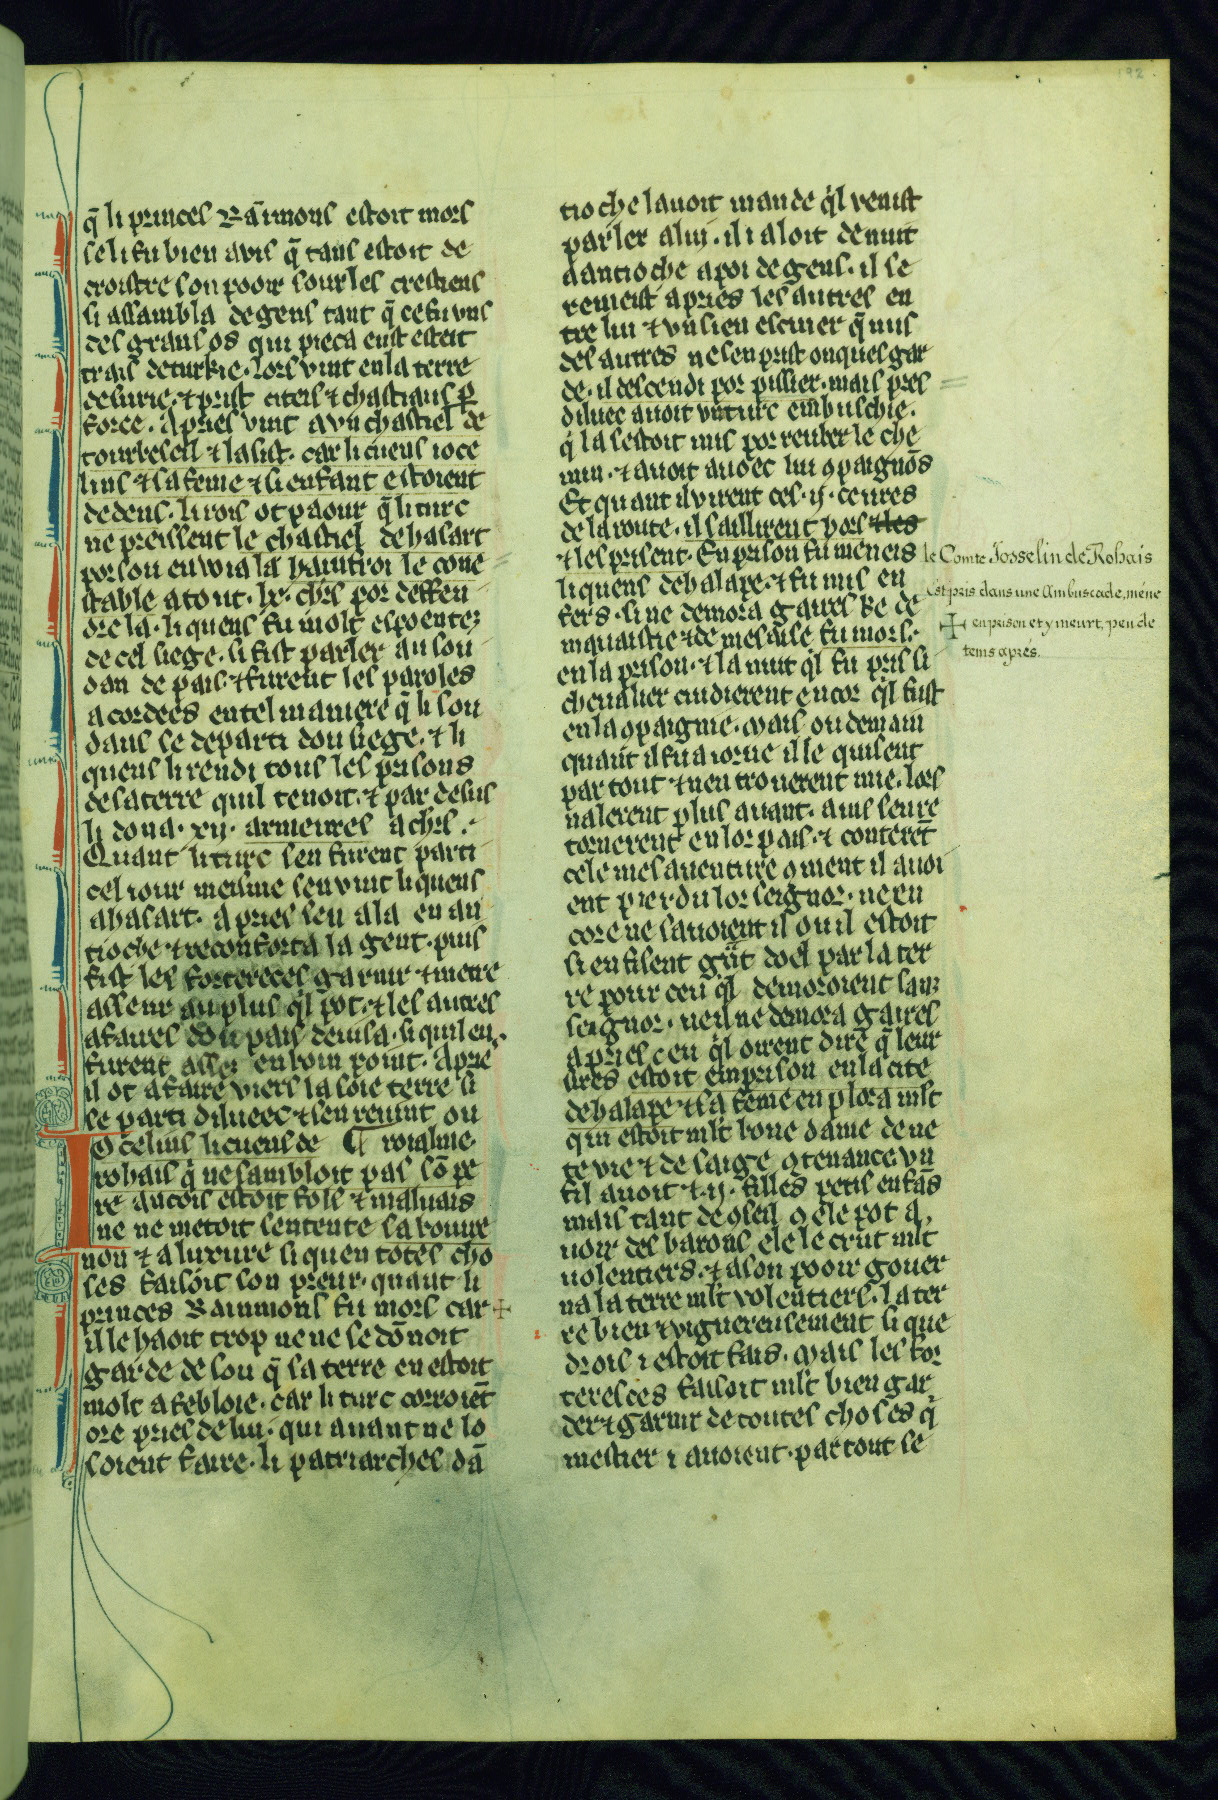 192
q̃ li princes Raimons estoit mors
se li fu bien avis q̃ tans estoit de
croistre son pooir sour les crestiens
si assambla de gens tant q̃ ce fu uns
des grans os qui pieca eust esteit
trais de turkie. lors vint en la terre
de surie. ⁊ prist citeis ⁊ chastiaus ꝑ
force. Apries vint a vn chastiel de
tourbeseil ⁊ lasist. car li cuens ioce
lins ⁊ sa feme ⁊ si enfant estoient
dedens. li rois ot paour q̃ li turc
ne preissent le chastiel de hasart
por sou enuoia la hainfroi le cone
stable a tout .lx. chr̃s por deffen
dre la. li quens fu molt espoentez
de cel siege. si fist parler au sou
dan de pais. ⁊ furent les paroles
acordees en tel maniere q̃ li sou
dans se departi dou siege. ⁊ li
quens li rendi tous les prisons
de sa terre quil tenoit. ⁊ par desus
li dona .xij. armeures a chr̃s.
Quant li turc sen furent parti
cel iour meisme sen vint li quens
a hasart. apries sen ala en an
tioche ⁊ reconforta la gent. puis
fist les forcereces garnir ⁊ metre
asseur au plus q̃l pot. ⁊ les autres
afaires dou pais deuisa. si quil en
furent assez en boin point. Aprie
il ot a faire viers la soie terre si
se parti dilueec ⁊ sen reuint ou
Ocelins li cuens de ¶ roialme.
rohais q̃ ne sambloit pas sõ pe
re ancois estoit fols ⁊ maluais
ne ne metoit sentente sa bouue
non ⁊ a luxure si quen totes cho
ses faisoit son preur. quant li
princes Raimmons fu mors car
il le haoit trop ne ne se dõnoit
garde de sou q̃ sa terre en estoit
molt afebloie. car li turc corroiẽt
ore pries de lui. qui auant ne lo
soient faire. li patriarches dã
tioche lauoit mande q̃l venist
parler a lui. il i aloit de nuit
a antioche a poi de gens. il se
remeist apries les autres en
tre lui ⁊ vn sien escuier q̃ nus
des autres ne sen prist onques gar
de. il descendi por pissier. mais pres
diluec auoit vn turc embuschie.
q̃ la sestoit mis por reuber le che
min. ⁊ auoit auoec lui ꝯpaignõs
Et quant il virent ces .ij. ceures
de la route. il saillirent hors ⁊ les
⁊ les prisent. En prison fu meneis
li quens de halape. ⁊ fu mis en
fers. si ne demora gaires ke de
mauaistie ⁊ de mesaise fu mors.
en la prison. ⁊ la nuit q̃l fu pris si
cheualier cuidierent encor q̃l fust
en la ꝯpaignie. Mais ou demain
quant il fu a iorne il le quisent
par tout ⁊ nen trouerent mie. lors
nalerent plus auant. ains sen re
tornerent en lor pais. ⁊ conterẽt
cele mesauenture ꝯment il auoi
ent pierdu lor seignor. ne en
core ne sauoient il ou il estoit
si en fisent gñt doel par la ter
re pour ceu q̃l demoroient sanz
seignor. ne il ne demora gaires
apries ceu q̃l oirent dire q̃ leur
sires estoit en prison en la cite
de halape ⁊ sa feme en plora mlt
qui estoit mlt bone dame de ne
te vie ⁊ de saige ꝯtenance. vn
fil auoit ⁊ .ij. filles petis enfãs
mais tant de ꝯseil ꝯ ele pot a
uoir des barons ele le crut mlt
uolentiers. ⁊ a son pooir gouer
na la terre mlt volentiers. la ter
re bien ⁊ viguereusement si que
drois i estoit fais. Mais les for
teresces faisoit mlt bien gar
der ⁊ garnir de toutes choses q̃
mestier i auoient. par tout se
le Comte Josselin de Rohais
est pris dans une Ambuscade, méné
en prison et y meurt, peu de
tems aprés.